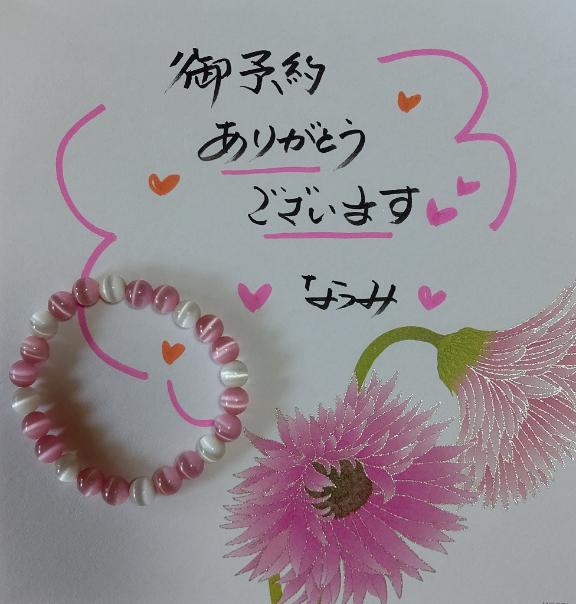 御予約
ありがとう
ございます
なつみ